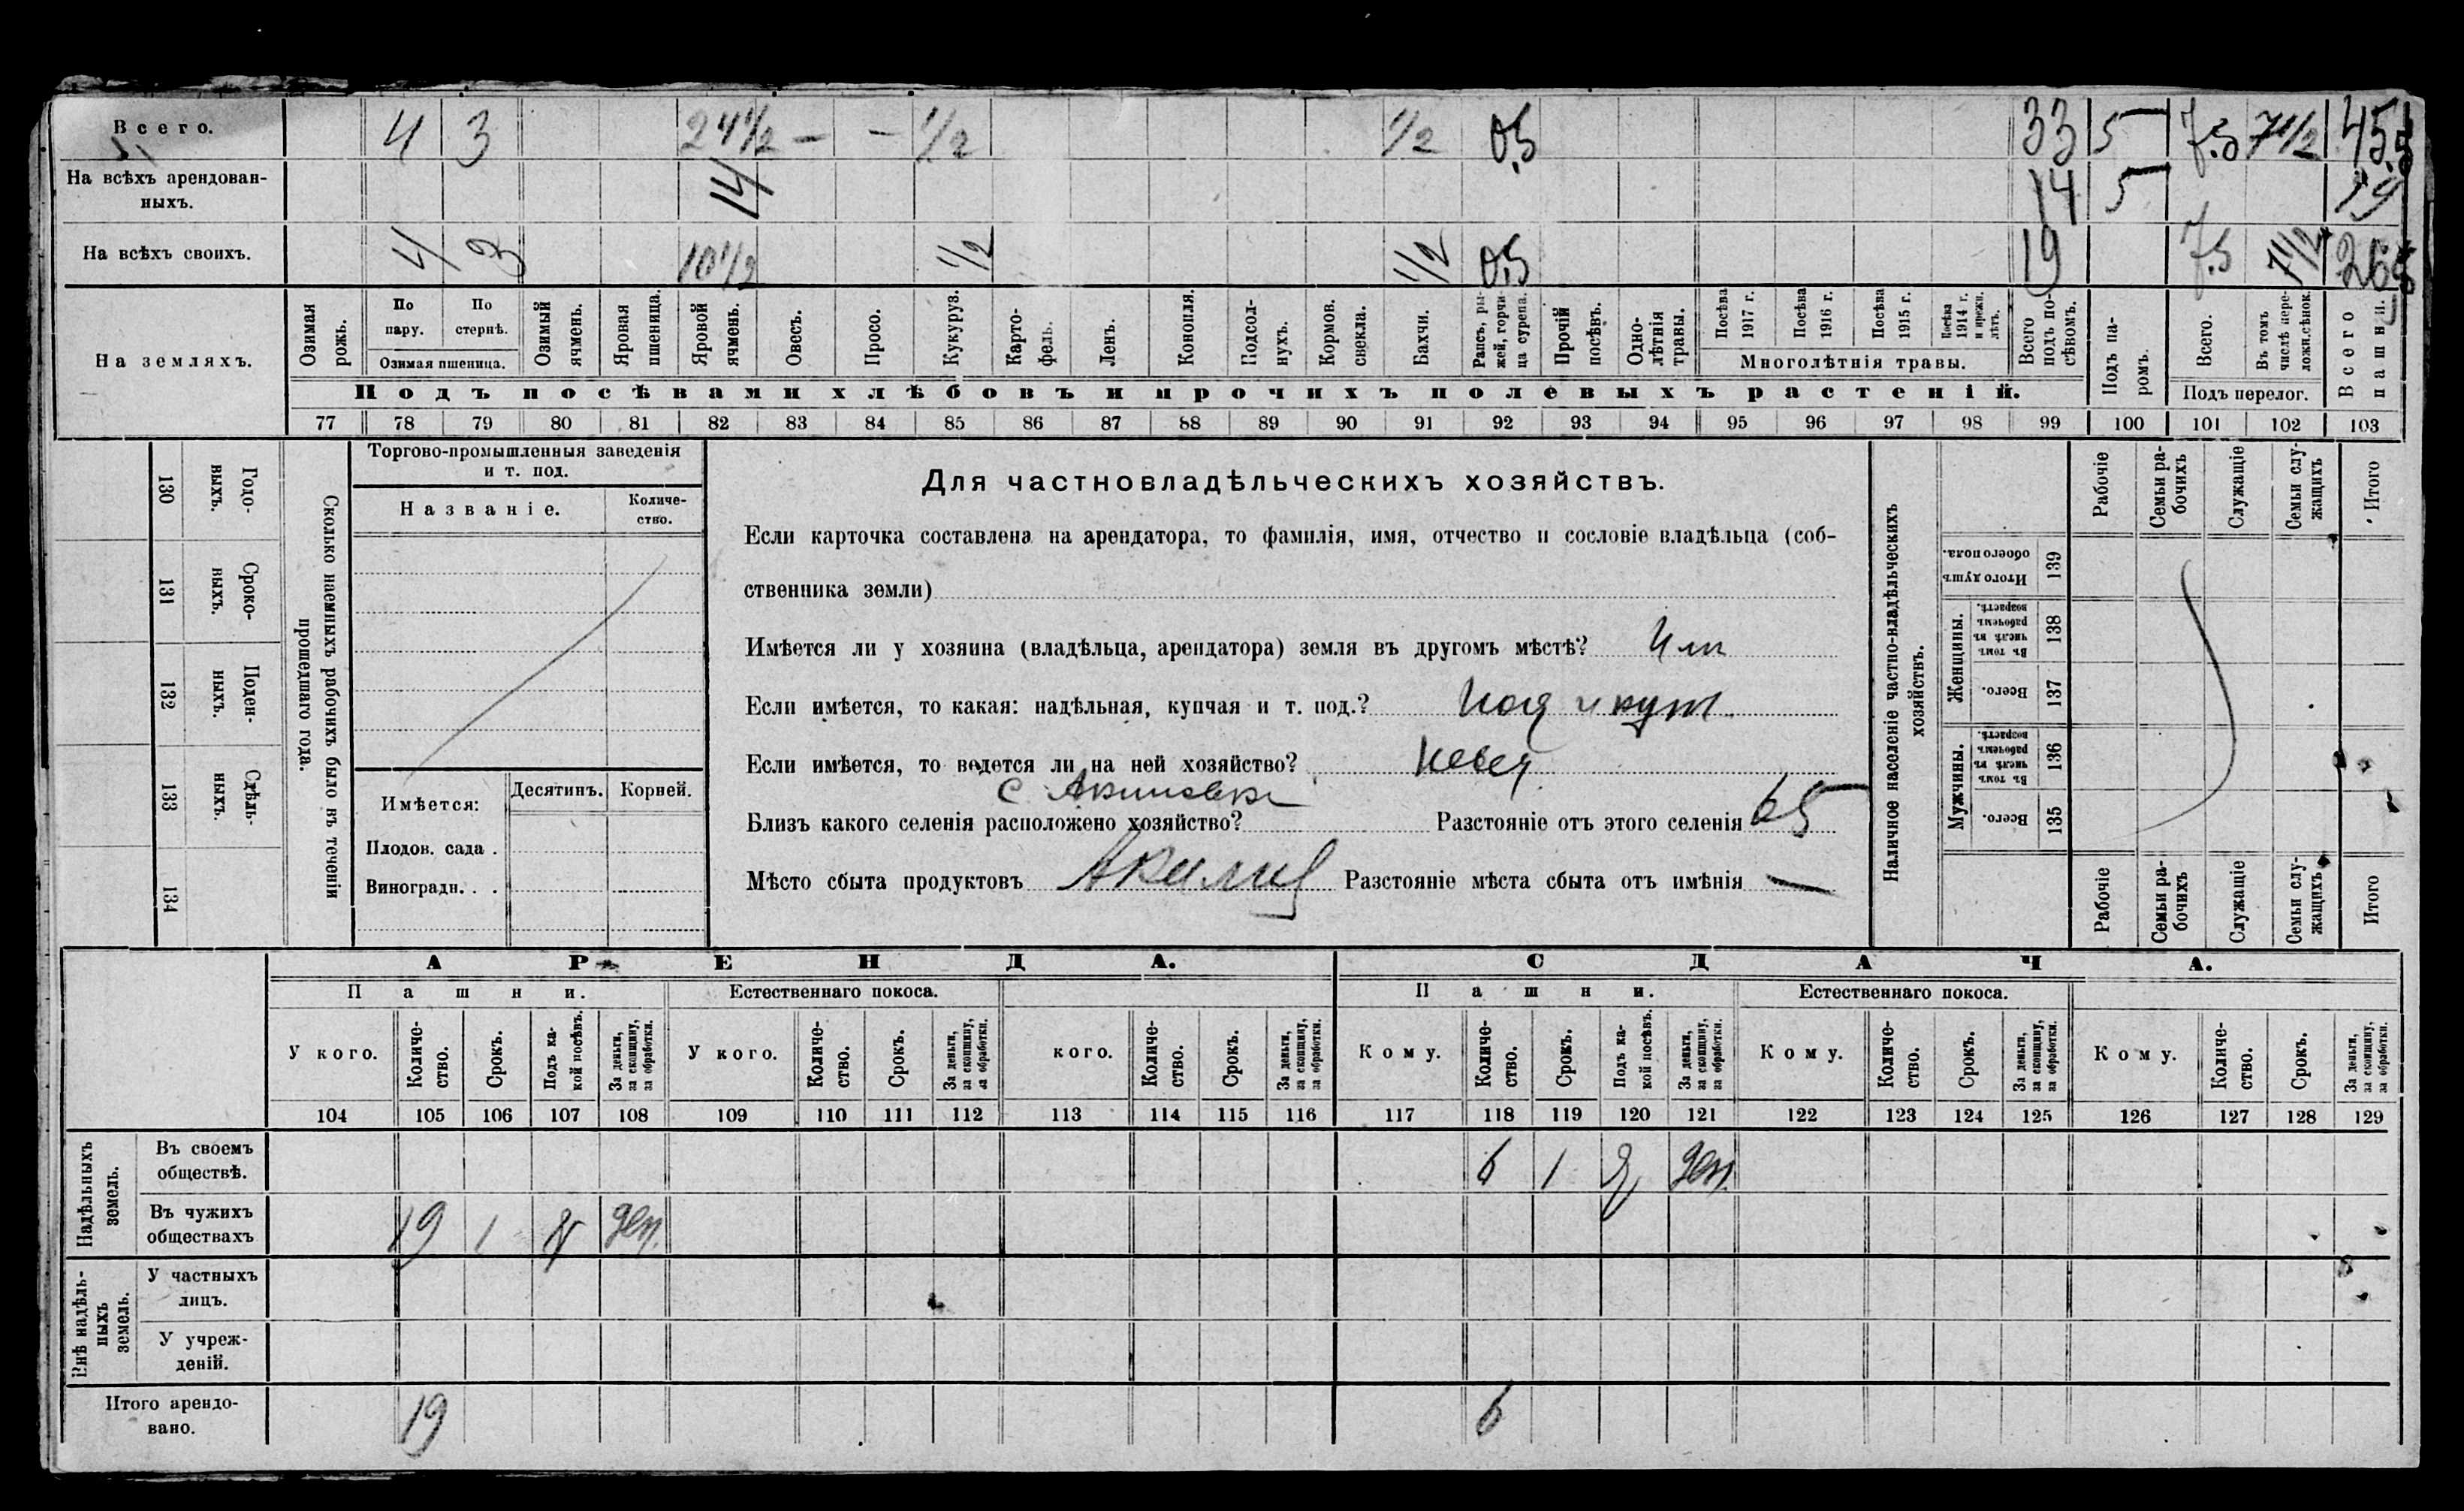 Всего. 4 3 24 1/2 — — 1/2 1/2 0,5 33 5 7.5 7 1/2 45.5
На всѣхъ арендован-
ныхъ. 14 14 5 19
На всѣхъ своихъ. 4 3 10 1/2 1/2 1/2 0,5 19 7.5 7 1/2 26,5
На земляхъ.
Озимая рожь.
По пару.
По стернѣ.
Озимая пшеница.
Озимый ячмень.
Яровая пшеница.
Яровой ячмень.
Овесъ.
Просо.
Кукуруз.
Карто-
фель.
Ленъ.
Конопля.
Подсол-
нухъ.
Кормов. свекла.
Бахчи.
Рапсъ, ры-
жей, горчи-
ца сурепа.
Прочій посѣвъ.
Одно-
лѣтнія травы.
Посѣва 1917 г.
Посѣва 1916 г.
Посѣва 1915 г.
Посѣва 1914 г. и прежн. лѣтъ.
Многолѣтнія травы.
Всего подъ по-
сѣвомъ.
Подъ па-
ромъ.
Всего.
Въ томъ числѣ пере-
ложн. сѣнок.
Подъ перелог.
Всего пашни.
Подъ посѣвами хлѣбовъ и прочихъ полевыхъ растеній.
77 78 79 80 81 82 83 84 85 86 87 88 89 90 91 92 93 94 95 96 97 98 99 100 101 102 103
130 Годо-
ныхъ.
131 Сроко-
ныхъ.
132 Поден-
ныхъ.
133 Сдѣль-
ныхъ.
134
Сколько наемныхъ рабочихъ было въ теченіи
прошедшаго года.
Торгово-промышленныя заведенія
и т. под.
Названіе.
Количе-
ство.
Имѣется: Десятинъ. Корней.
Плодов. сада .
Виноградн. . .
Для частновладѣльческихъ хозяйствъ.
Если карточка составлена на арендатора, то фамилія, имя, отчество и сословіе владѣльца (соб-
ственника земли)
Имѣется ли у хозяина (владѣльца, арендатора) земля въ другомъ мѣстѣ?
Если имѣется, то какая: надѣльная, купчая и т. под.?
Если имѣется, то ведется ли на ней хозяйство?
Близъ какого селенія расположено хозяйство? Разстояніе отъ этого селенія 65
Мѣсто сбыта продуктовъ Разстояніе мѣста сбыта отъ имѣнія —
Наличное населеніе частно-владѣльческихъ
хозяйствъ.
Рабочіе
Семьи ра-
бочихъ
Служащіе
Семьи слу-
жащихъ
Итого
Итого душъ обоего пола. 139
Женщины.
Въ томъ числѣ въ рабочемъ возрастѣ. 138
Всего. 137
Мужчины.
Въ томъ числѣ въ рабочемъ возрастѣ. 136
Всего. 135
Рабочіе
Семьи ра-
бочихъ
Служащіе
Семьи слу-
жащихъ
Итого
АРЕНДА. СДАЧА.
Пашни. Естественнаго покоса. Пашни. Естественнаго покоса.
У кого.
Количе-
ство.
Срокъ.
Подъ ка-
кой посѣвъ.
За деньги, за скопщину, за обработки.
У кого.
Количе-
ство.
Срокъ.
За деньги, за скопщину, за обработки.
кого.
Количе-
ство.
Срокъ.
За деньги, за скопщину, за обработки.
Кому.
Количе-
ство.
Срокъ.
Подъ ка-
кой посѣвъ.
За деньги, за скопщину, за обработки.
Кому.
Количе-
ство.
Срокъ.
За деньги, за скопщину, за обработки.
Кому.
Количе-
ство.
Срокъ.
За деньги, за скопщину, за обработки.
104 105 106 107 108 109 110 111 112 113 114 115 116 117 118 119 120 121 122 123 124 125 126 127 128 129
Надѣльныхъ
земель.
Въ своемъ
обществѣ. 6 1 ден.
Въ чужихъ
обществахъ 19 1 ден.
Внѣ надѣль-
ныхъ
земель.
У частныхъ
лицъ.
У учреж-
деній.
Итого арендо-
вано. 19 6